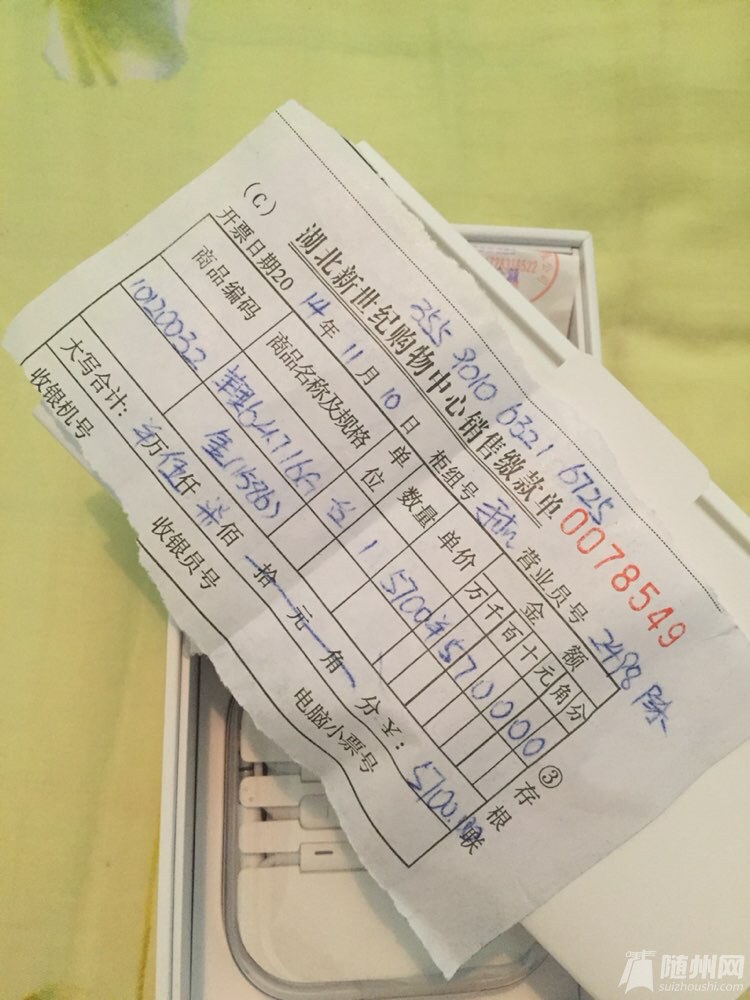 (C)
湖北新世纪购物中心销售缴款单
0078549
355 9010 6321 6725
开票日期2014年11月10日 柜组号 手机 营业员号 2498 陈
商品编码 商品名称及规格 单位 数量 单价 金额
万千百十元角分
10120032 苹果64.7166 台 1 5700 ¥570000
金(1586)
大写合计: 万伍仟柒佰拾元角分 ¥: 5700.00
收银机号 收银员号 电脑小票号
③存根联
随州网
suizhoushi.com